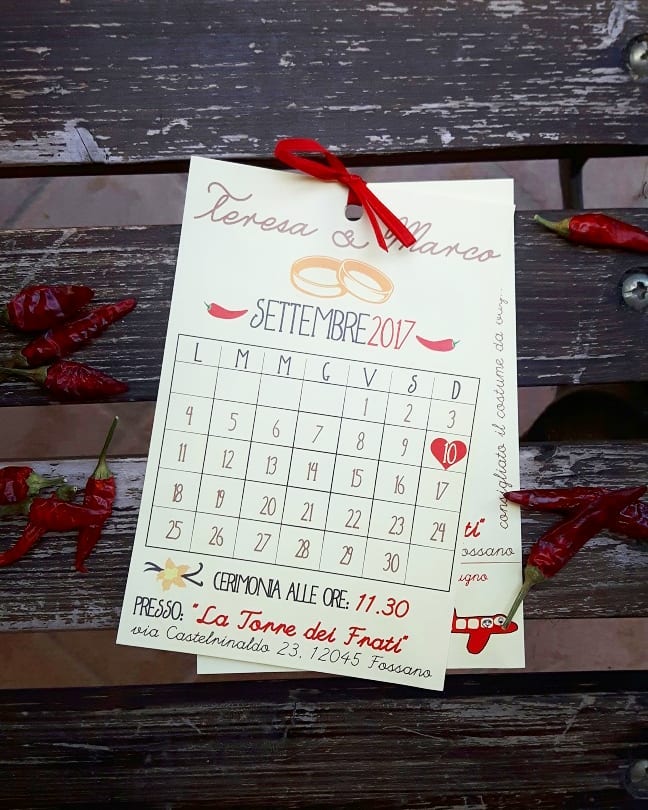 Teresa & Marco
SETTEMBRE 2017
L M M G V S D
1 2 3
4 5 6 7 8 9 10
11 12 13 14 15 16 17
18 19 20 21 22 23 24
25 26 27 28 29 30
CERIMONIA ALLE ORE: 11.30
PRESSO: "La Torre dei Frati"
via Castelrinaldo 23, 12045 Fossano
consigliato il costume da
ti"
ossano
ugno